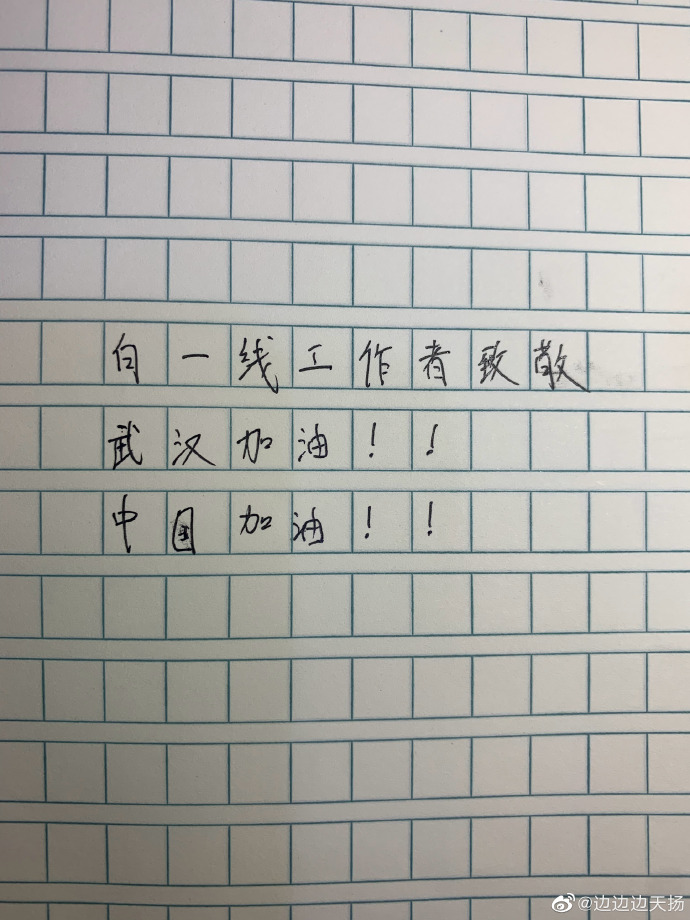 向一线工作者致敬
武汉加油！！
中国加油！！
@边边边天扬